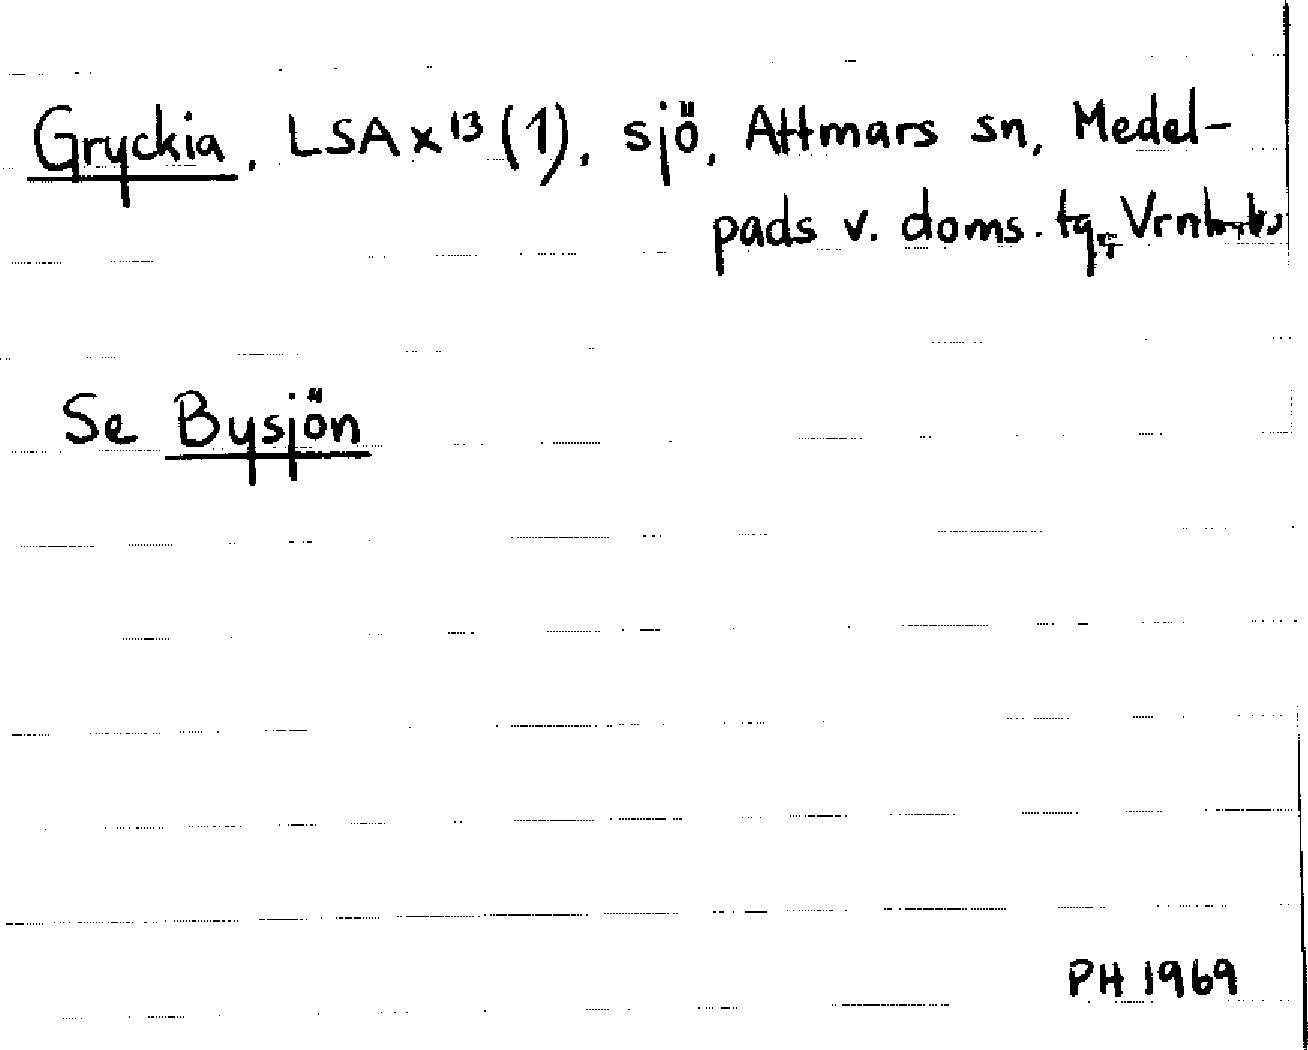 Gryckia, LSA x¹³ (1), sjö, Attmars sn, Medel-
pads v. doms. tg,
Se Bysjön
PH 1969